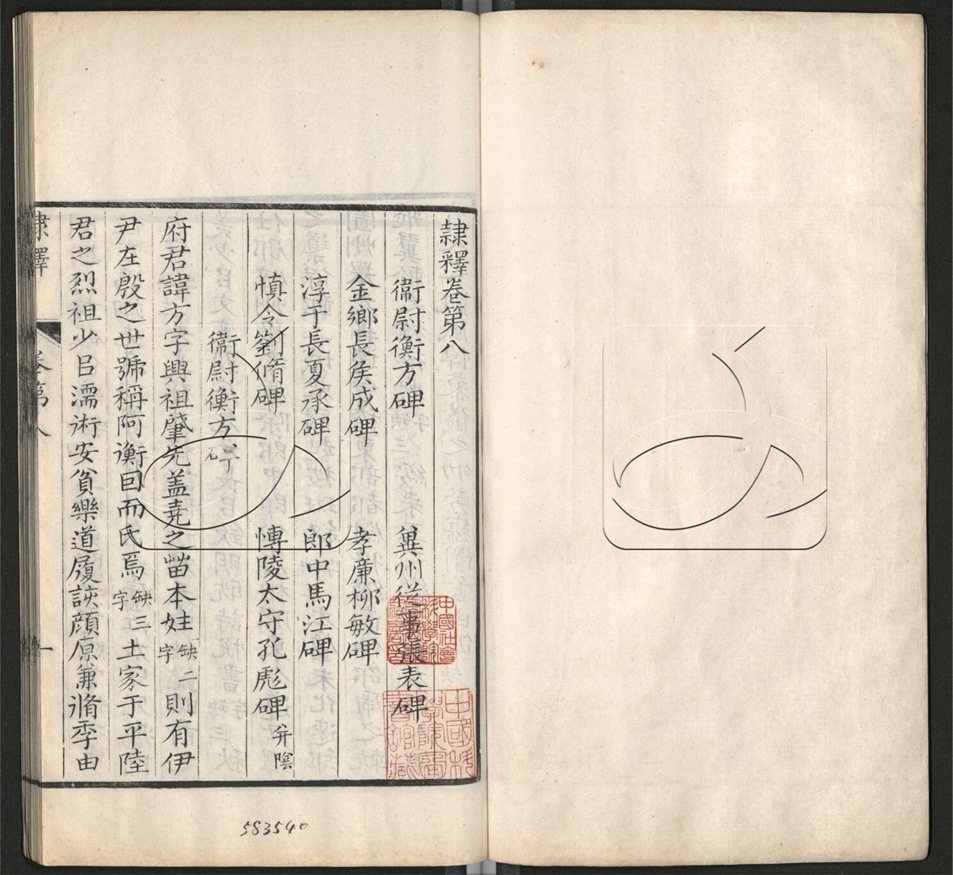 隷釋卷第八
衞尉衡方碑 兾州從事張表碑
金鄉長侯成碑 孝廉柳敏碑
淳于長夏承碑 郎中馬江碑
慎令劉脩碑 愽陵太守孔彪碑 并陰
衞尉衡方碑
府君諱方字興祖肇先盖堯之苗本姓 缺二字 則有伊
尹在殷之世號稱阿衡因而氏焉 缺三字 土家于平陸
君之烈祖少㠯濡術安貧樂道履該顔原兼脩季由
隷釋
卷第八
一
583540